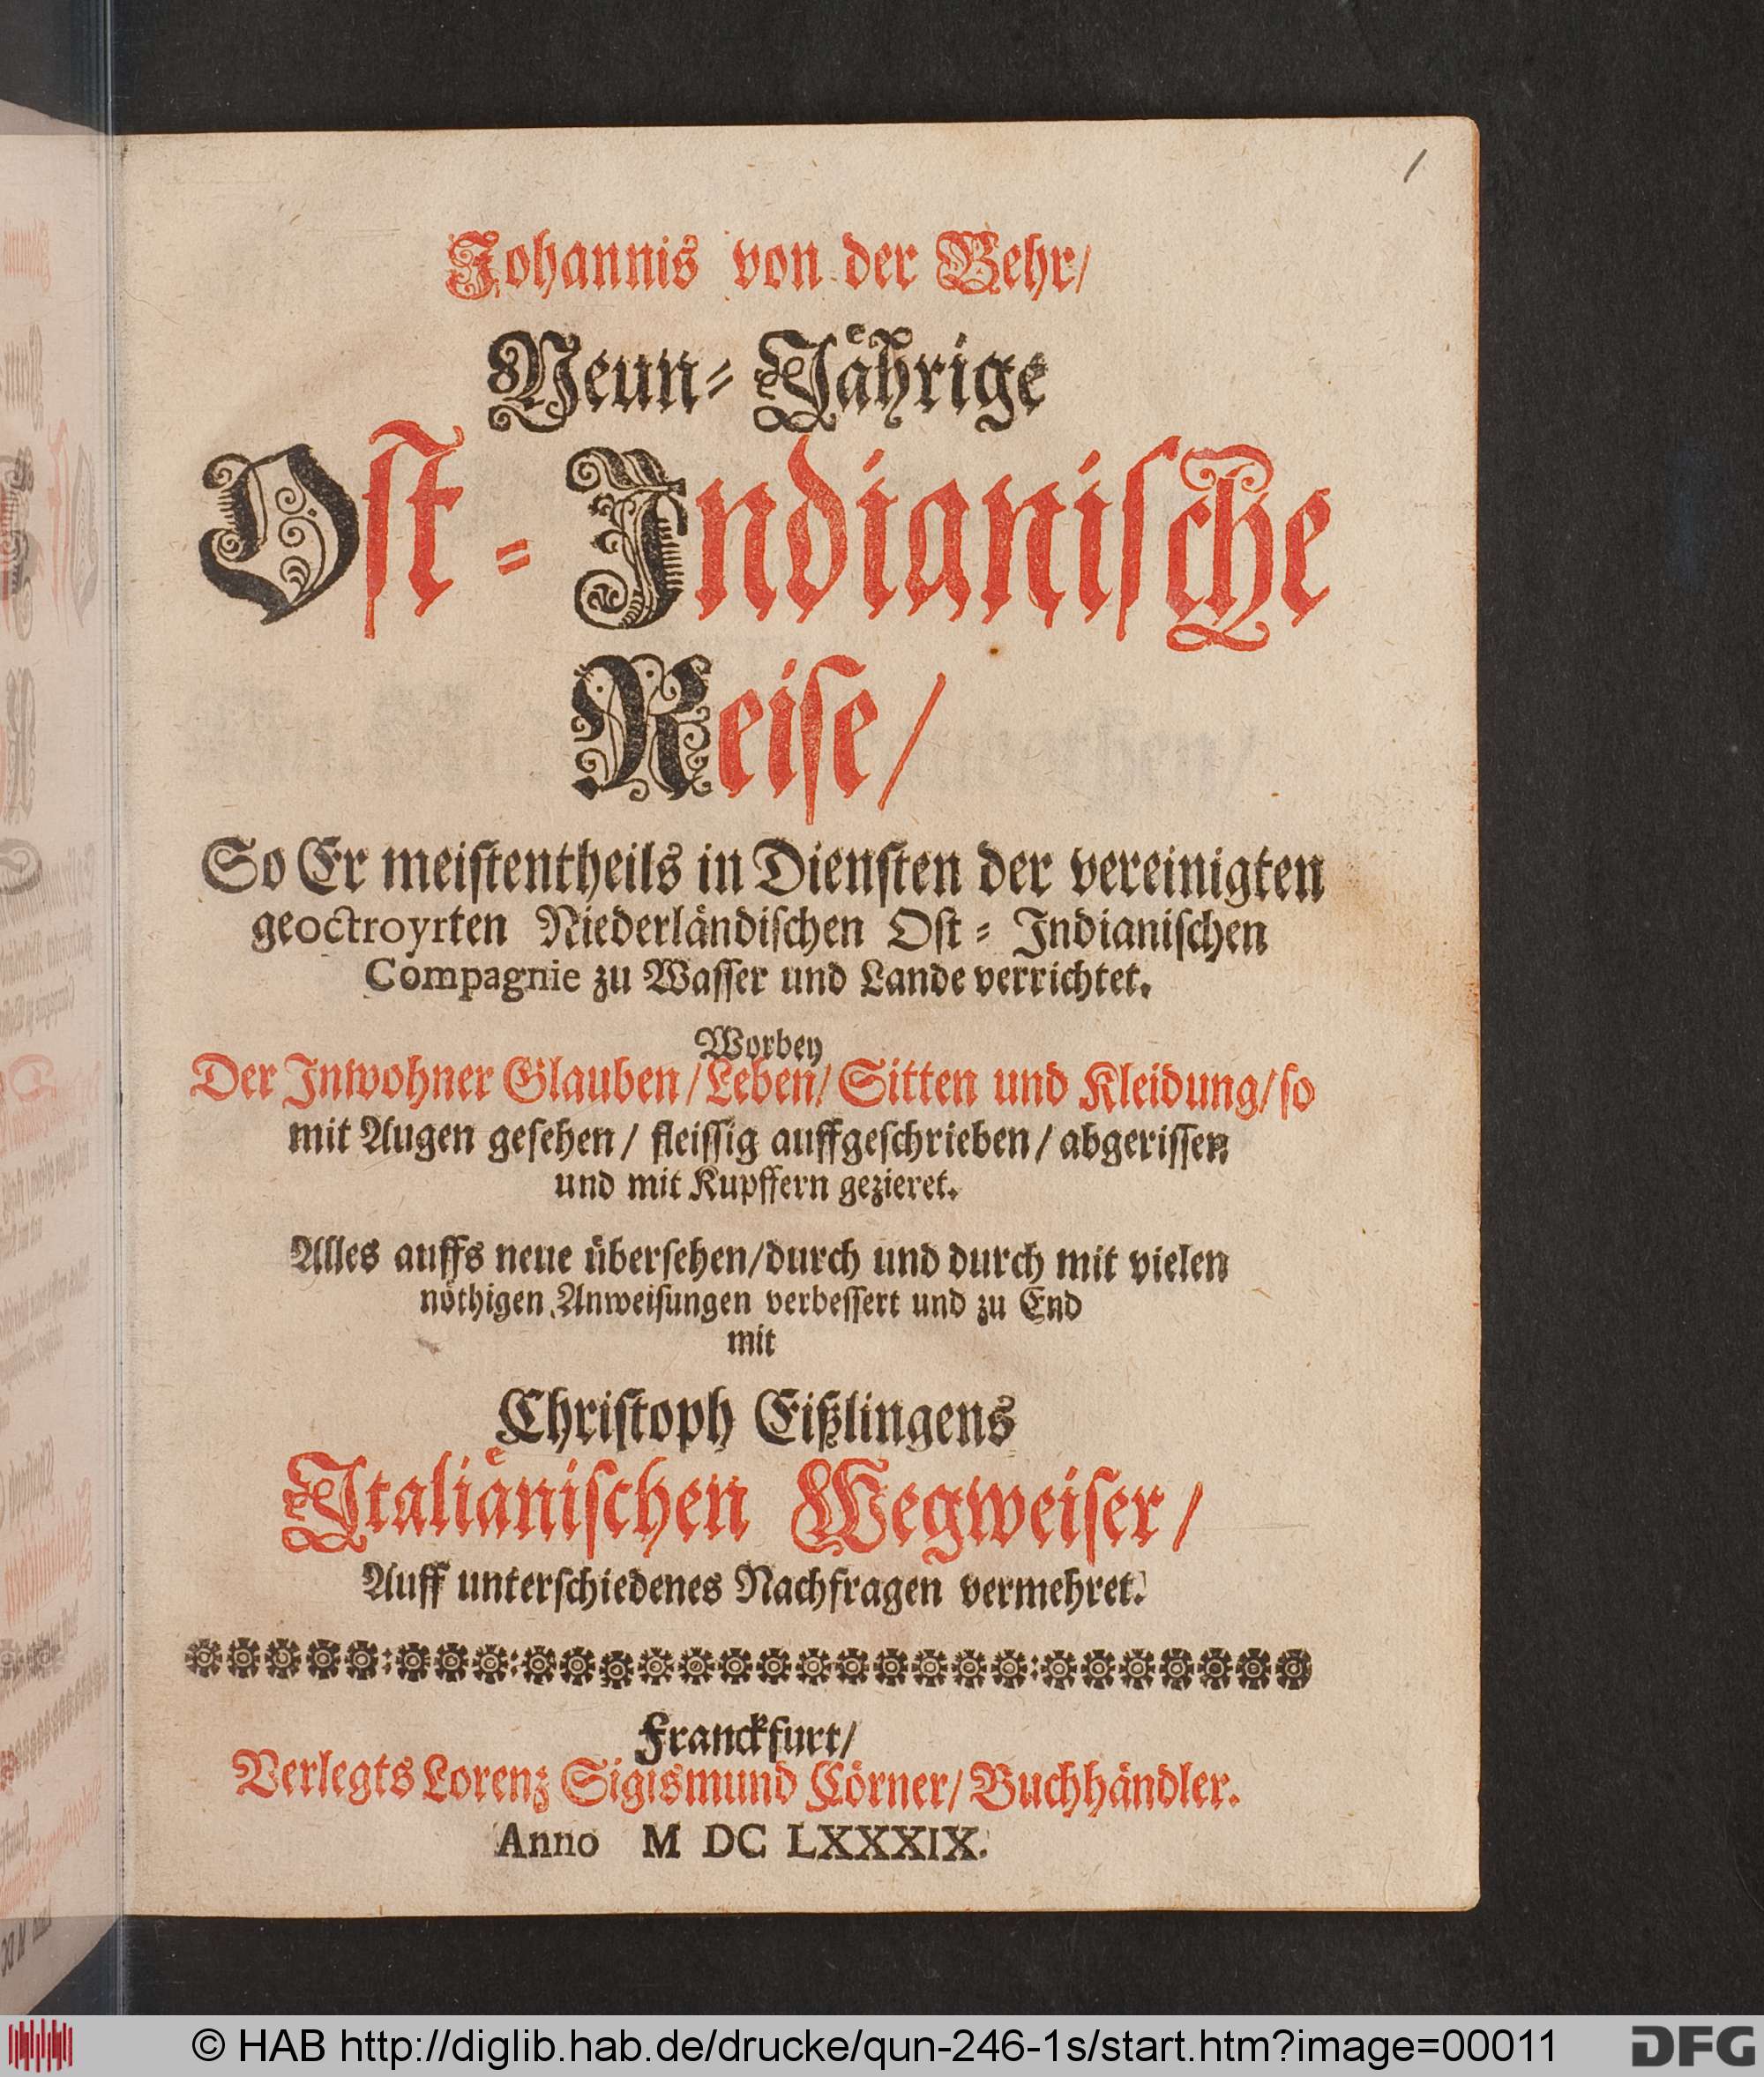 1
Johannis von der Behr/
Neun⸗Jährige
Ost⸗Indianische
Reise/
So Er meistentheils in Diensten der vereinigten
geoctroyrten Niederländischen Ost⸗Indianischen
Compagnie zu Wasser und Lande verrichtet.
Worbey
Der Inwohner Glauben/Leben/Sitten und Kleidung/so
mit Augen gesehen/fleissig auffgeschrieben/abgerissen
und mit Kupffern gezieret.
Alles auffs neue übersehen/durch und durch mit vielen
nöthigen Anweisungen verbessert und zu End
mit
Christoph Eißlingens
Italiänischen Wegweiser/
Auff unterschiedenes Nachfragen vermehret.
Franckfurt/
Verlegts Lorenz Sigismund Cörner/Buchhändler.
Anno M DC LXXXIX.
© HAB http://diglib.hab.de/drucke/qun-246-1s/start.htm?image=00011
DFG